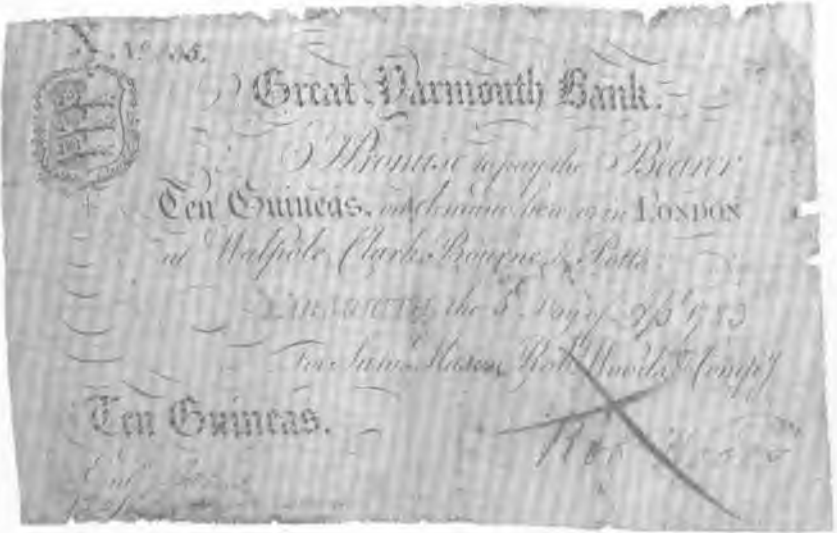 Great Yarmouth Bank.
I Promise to pay the Bearer
Ten Guineas. on demand here or in LONDON
at Walpole, Clark, Bourne, & Potts.
YARMOUTH, the 5th Day of 1783
For Saml. Robt. Woods & Compy.
Ten Guineas.